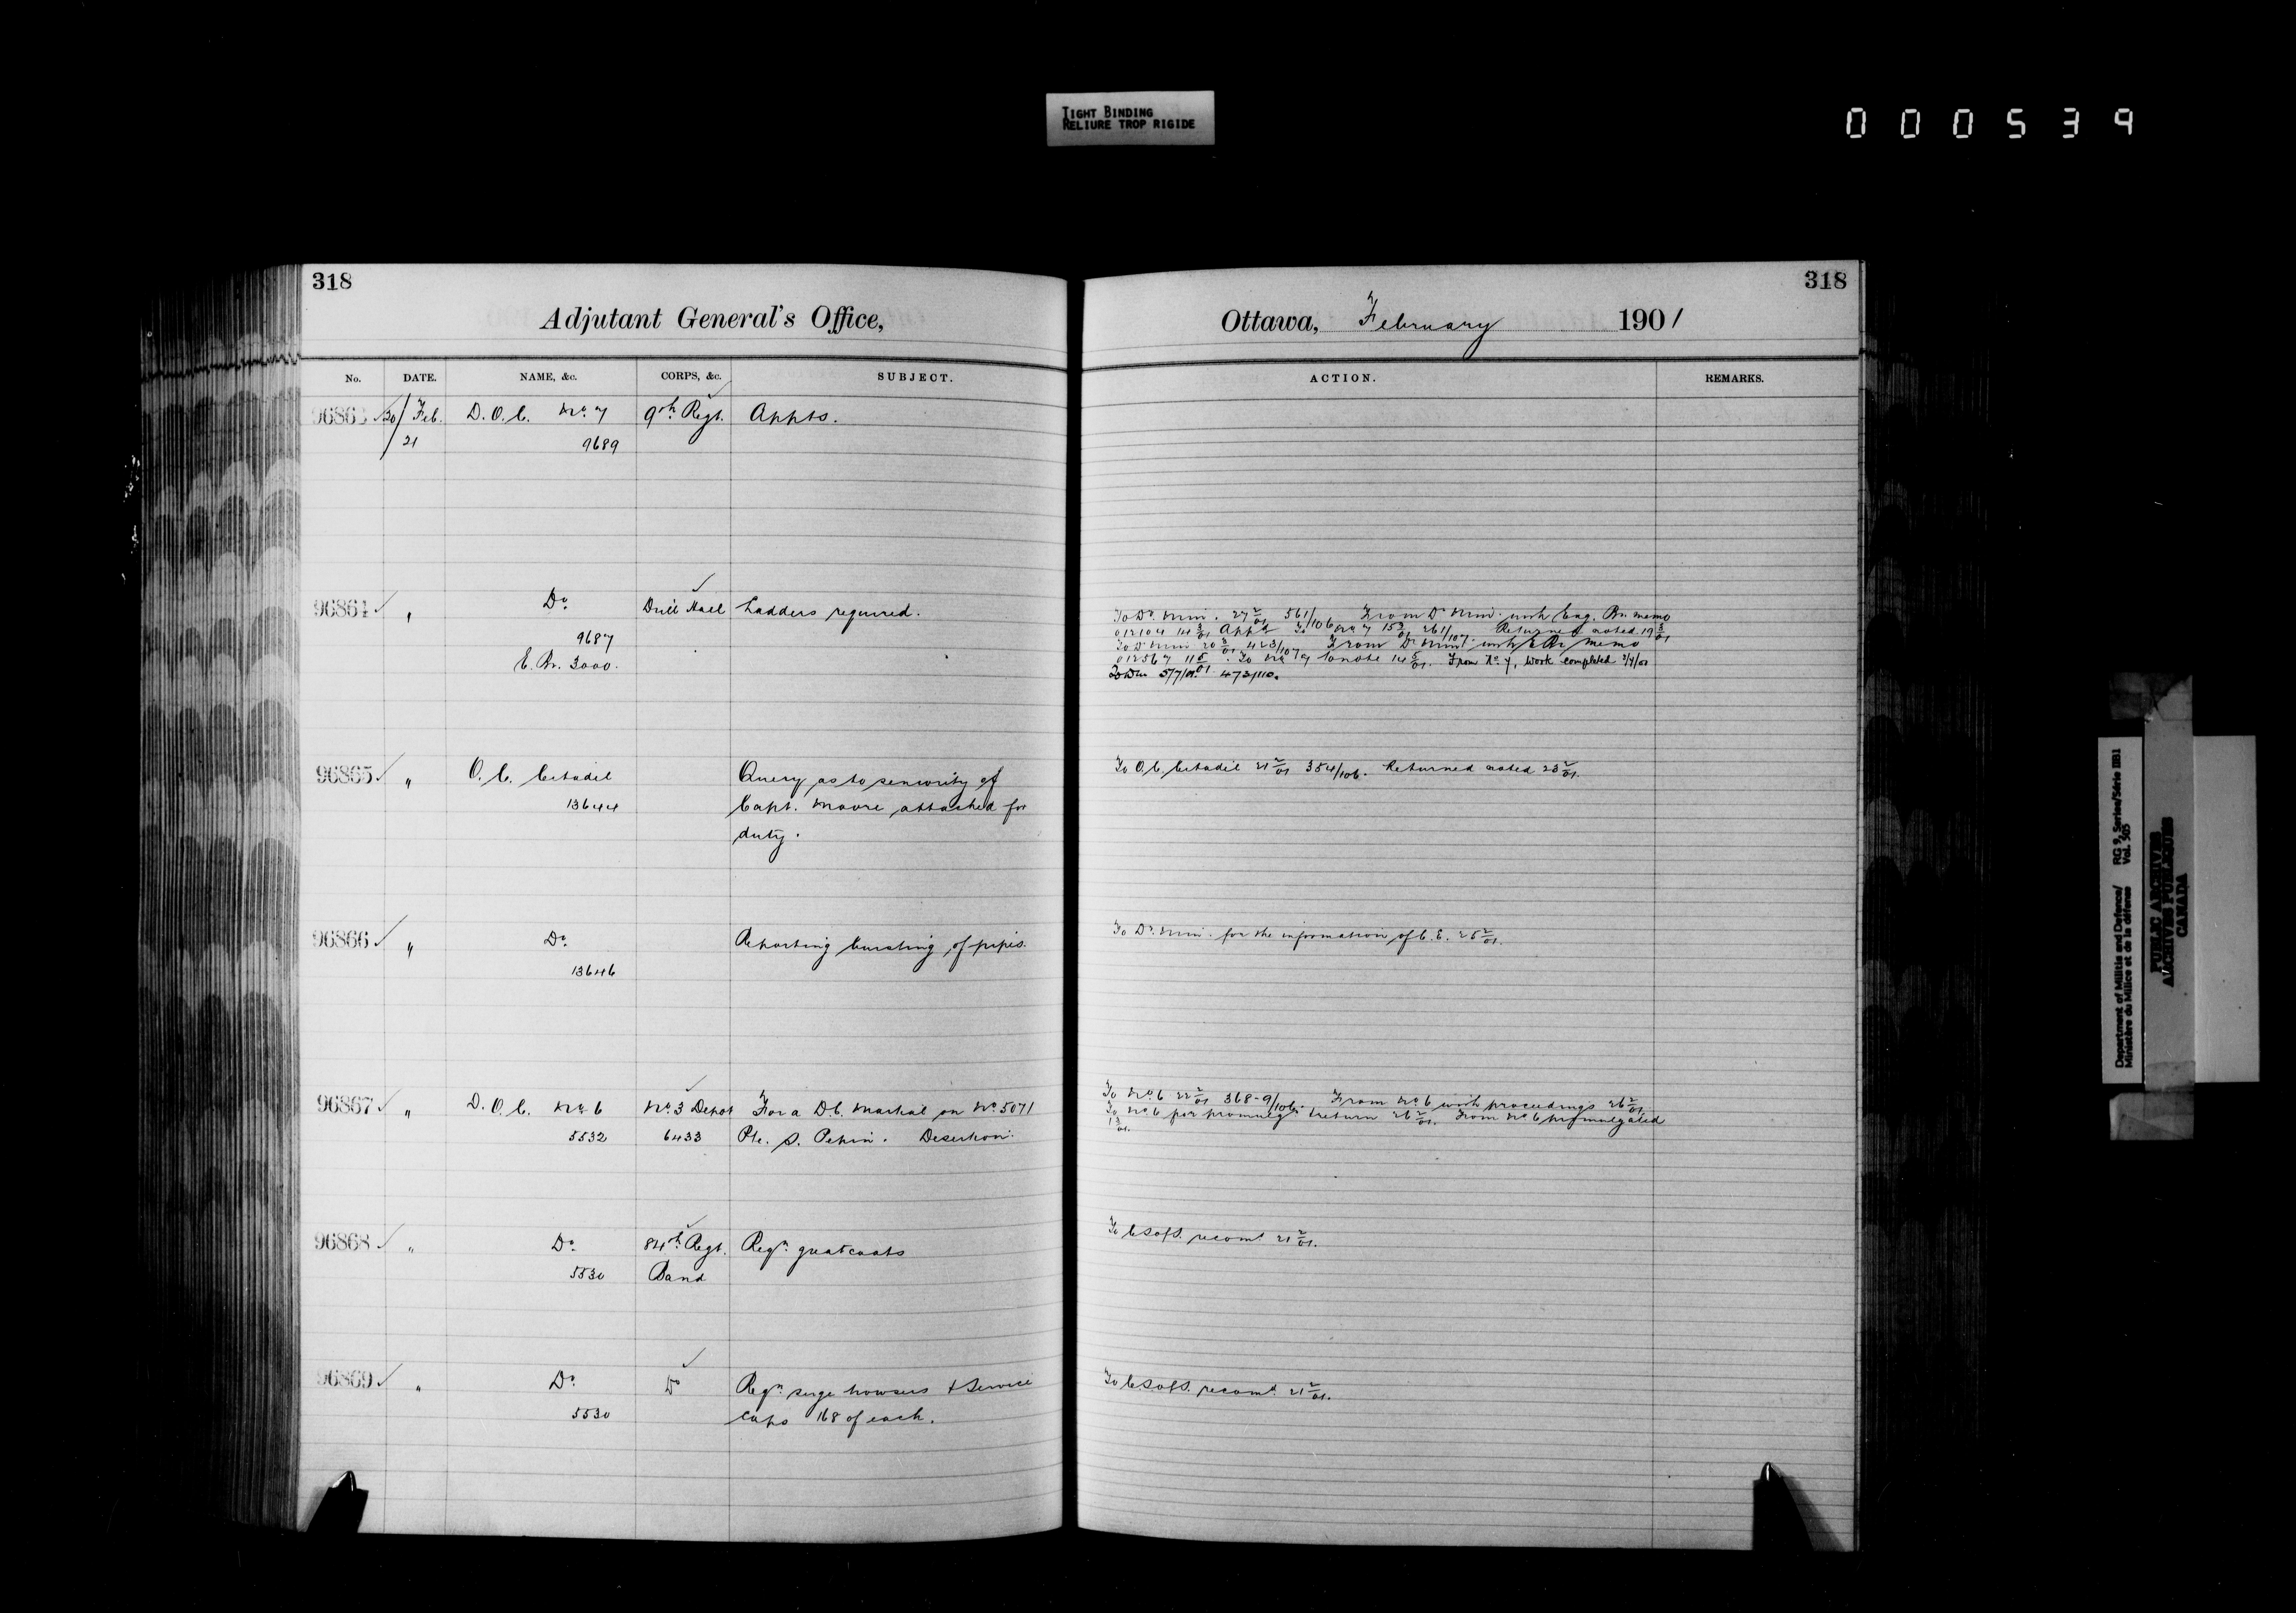 TIGHT BINDING
RELIURE TROP RIGIDE
000539
318
Adjutant General's Office,
No. DATE. NAME, &c. CORPS, &c. SUBJECT.
96863 20/21 Feb. D.O.C. No. 7 9th Regt. Appts.
9689
96864 " Do. Drill Hall Ladders required.
9687
E. Br. 3000.
96865 " O.C. Citadel Query as to seniority of
13644 Capt. Moore attached for
duty.
96866 " Do. Reporting bursting of pipes.
13646
96867 " D.O.C. No. 6 No. 3 Depot For a D.C. Martial on No. 5071
5532 6433 Pte. S. Pepin. Desertion.
96868 " Do. 84th Regt. Reqn. greatcoats
5530 Band
96869 " Do. Do. Reqn. serge trousers & Service
5530 caps 168 of each.
318
Ottawa, February 1901
ACTION. REMARKS.
To D. Min. 27/2/01 561/106 From D. Min. with Eng. Br. memo
012104 14/3/01 Appd. To No. 7 15/3/01 261/107. Returned noted 19/3/01
To D. Min 20/3/01 423/107 From D. Min. with E Br. memo
012567 11/5/01. To No. 7 to note 14/5/01. From No. 7, work completed 2/7/01
To DM 5/7/01. 473/110.
To O.C. Citadel 21/2/01 354/106. Returned noted 23/2/01.
To D. Min. for the information of C.E. 25/2/01.
To No. 6 22/2/01 368-9/106. From No. 6 with proceedings 26/2/01.
To No. 6 for promulgn. & return 26/2/01. From No. 6 promulgated
1/3/01.
To C.S. of S. recomd. 21/2/01.
To C.S. of S. recomd. 21/2/01.
Department of Militia and Defence/ RG 9, Series/Série IIB1
Ministère du Milice et de la défense Vol. 505
PUBLIC ARCHIVES
ARCHIVES PUBLIQUES
CANADA